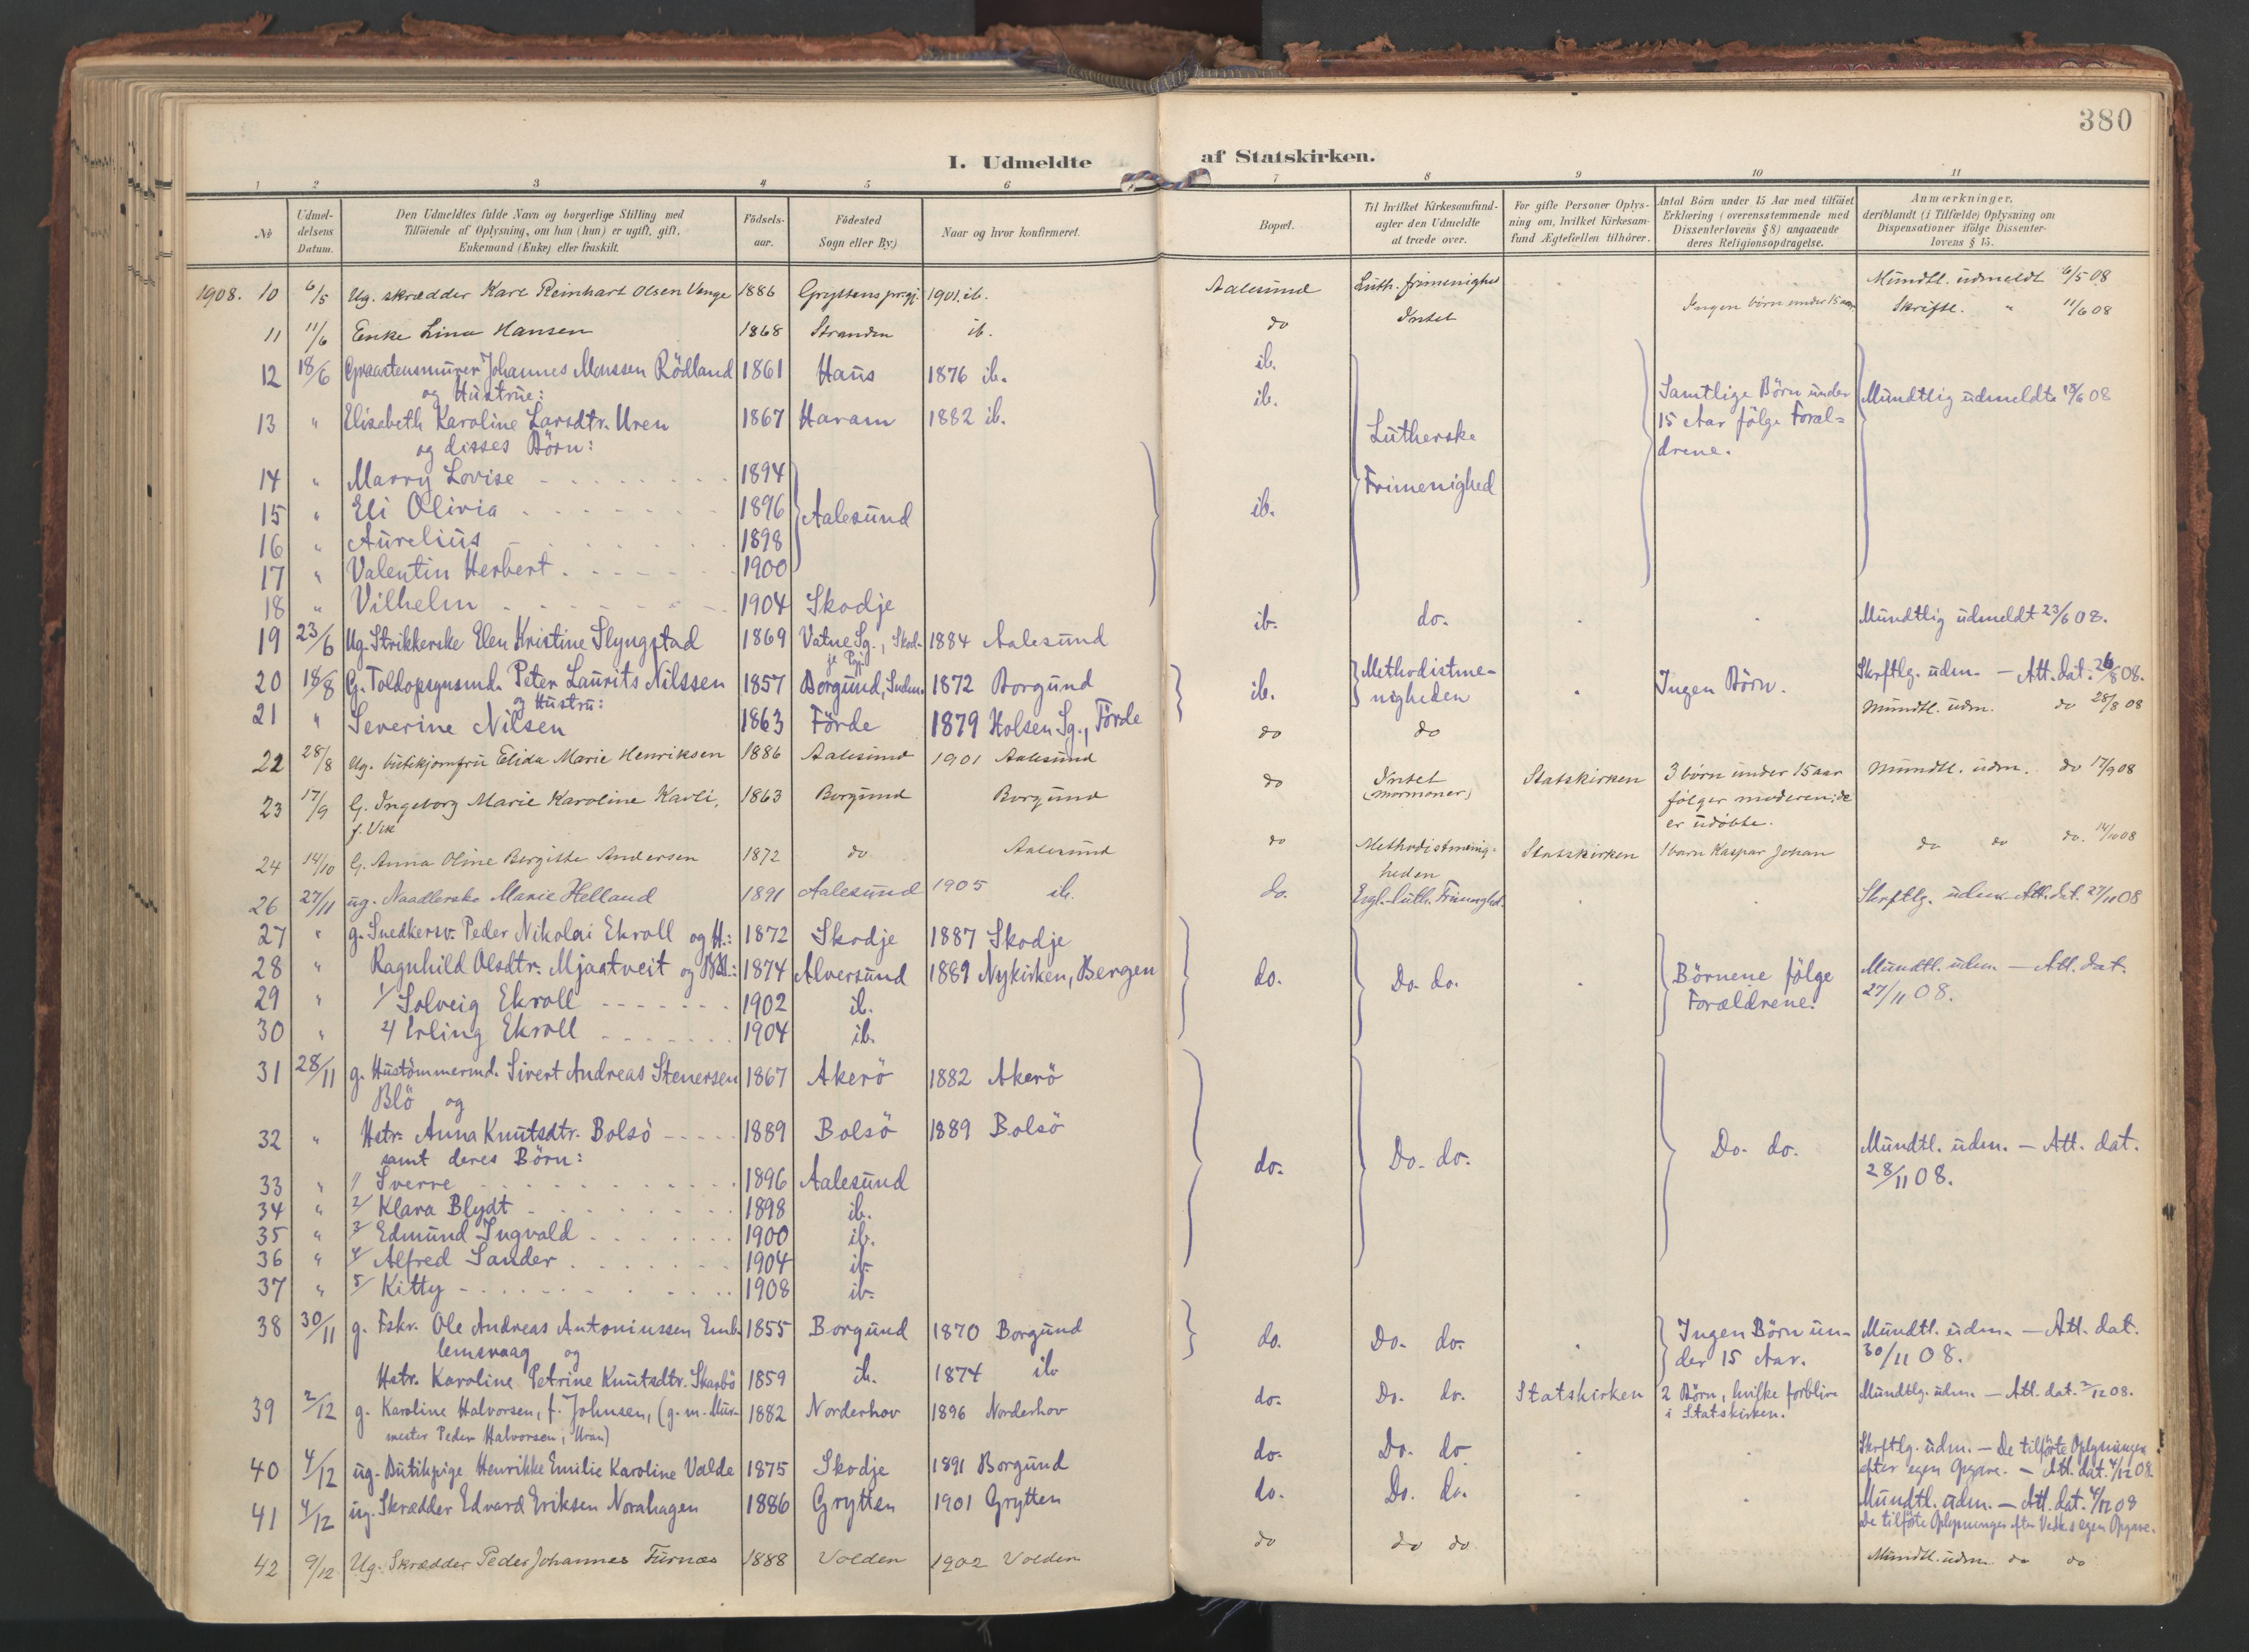 380
I. Udmeldte af Statskirken.
1 2 3 4 5 6 7 8 9 10 11
№
Udmel-
delsens
Datum.
Den Udmeldtes fulde Navn og borgerlige Stilling med
Tilføiende af Oplysning, om han (hun) er ugift, gift,
Enkemand (Enke) eller fraskilt.
Fødsels-
aar.
Fødested
Sogn eller By.)
Naar og hvor konfirmeret.
Bopæl.
Til hvilket Kirkesamfund-
agter den Udmeldte
at træde over.
For gifte Personer Oplys-
ning om, hvilket Kirkesam-
fund Ægtefællen tilhører.
Antal Børn under 15 Aar med tilføiet
Erklæring (overensstemmende med
Dissenterlovens § 8) angaaende
deres Religionsopdragelse.
Anmærkninger,
deriblandt (i Tilfælde) Oplysning om
Dispensationer ifølge Dissenter-
lovens § 15.
1908. 10 6/5 Ug. skrædder Karl Reinhart Olsen Venge 1886 Gryttens prgj. 1901. ib. Aalesund Luth. frimenighed Mundtl. udmeldt 6/5 08
11 11/6 Enke Lina Hansen 1868 Stranden ib. do Intet Ingen börn under 15 aar, Skriftl. " 11/6 08
12 18/6 Graastensmurer Johannes Monssen Rödland 1861 Haus 1876 ib. ib.
og Hustrue:
13 " Elisabeth Karoline Larsdtr. Uren 1867 Haram 1882 ib. ib. Lutherske Frimenighed Samtlige Börn under 15 Aar fölge Foræl=drene. Mundtlig udmeldte 18/6 08
og disses Börn:
14 " Marry Lovise 1894
15 " Eli Olivia 1896 Aalesund ib.
16 " Aurelius 1898
17 " Valentin Herbert 1900
18 " Vilhelm 1904 Skodje
19 23/6 Ug. Strikkerske Elen Kristine Slyngstad 1869 Vatne Sg., Skod-je Pgj. 1884 Aalesund ib. do. Mundtlig udmeldt 23/6 08.
20 18/8 G. Toldopsynsmd. Peter Laurits Nilssen 1857 Borgund, Sndm. 1872 Borgund ib. Methodistme-nigheden Ingen Börn. Skrftlg. udm. — Att. dat. 26/8 08.
og Hustru:
21 " Severine Nilsen 1863 Förde 1879 Holsen Sg., Förde
22 28/8 Ug. butikjomfru Elida Marie Henriksen 1886 Aalesund 1901 Aalesund do do Mundtl. udm. do 28/8 08
23 17/9 G. Ingeborg Marie Karoline Kavli, 1863 Borgund Borgund do Intet (Mormoner) Statskirken 3 börn under 15 aar Mundtl. udm. do 17/9 08
f. Vik følger moderen; de
er udöbte.
24 14/10 G. Anna Oline Bergitte Andersen 1872 do Aalesund do Methodistmenig=heden Statskirken 1 barn Kaspar Johan do do do. 14/10 08
26 27/11 ug. Naadlerske Marie Helland 1891 Aalesund 1905 ib. do. Evgl.-luth. Frimnghd. Skrftlg. udm. Att. dat. 27/11 08
27 " g. Snedkersv. Peder Nikolai Ekroll og H.: 1872 Skodje 1887 Skodje
28 " Ragnhild Olsdtr. Mjaatveit og 1874 Alversund 1889 Nykirken, Bergen do. Do. do. Börnene fölge Forældrene. Mundtl. udm. — Att. dat. 27/11 08.
29 " 1/ Solveig Ekroll 1902 ib.
30 " 2/ Erling Ekroll 1904 ib.
31 28/11 g. Hustömmermd. Sivert Andreas Stenersen 1867 Akerö 1882 Akerö
Blö og
32 " Hstr. Anna Knutsdtr. Bolsö 1889 Bolsö 1889 Bolsö do. Do. do. Do. do. Mundtl. udm. — Att. dat. 28/11 08.
samt deres Börn:
33 " 1/ Sverre 1896 Aalesund
34 " 2/ Klara Blydt 1898 ib.
35 " 3/ Edmund Ingvald 1900 ib.
36 " 4/ Alfred Sander 1904 ib.
37 " 5/ Kitty 1908 ib.
38 30/11 g. Fskr. Ole Andreas Antoniussen Emb- 1855 Borgund 1870 Borgund do. Do. do. Ingen Börn un-der 15 Aar. Mundtl. udm. — Att. dat. 30/11 08.
lemsvaag og
Hstr. Karoline Petrine Knutsdtr. Skarbö 1859 ib. 1874 ib
39 2/12 g. Karoline Halvorsen, f. Johnsen, (g. m. Mur- 1882 Norderhov 1896 Norderhov do. Do. do. Statskirken 2 Börn, hvilke forblive i Statskirken. Mundtlg. udm. — Att. dat. 2/12 08.
mester Peder Halvorsen, Uran)
40 4/12 ug. Butikpige Henrikke Emilie Karoline Valde 1875 Skodje 1891 Borgund do. Do. do. Skrftlg. udm. — De tilförte Oplysninger
efter egen Opgave. — Att. dat. 4/12 08.
41 4/12 ug. Skrædder Edvard Eriksen Norahagen 1886 Grytten 1901 Grytten do. Do. do. Mundtl. udm. — Att. dat. 4/12 08
De tilförte Oplysninger efter Vedk.s egen Opgave.
42 9/12 Ug. Skrædder Peder Johannes Furnæs 1888 Volden 1902 Volden do do do Mundtl. udm. do do